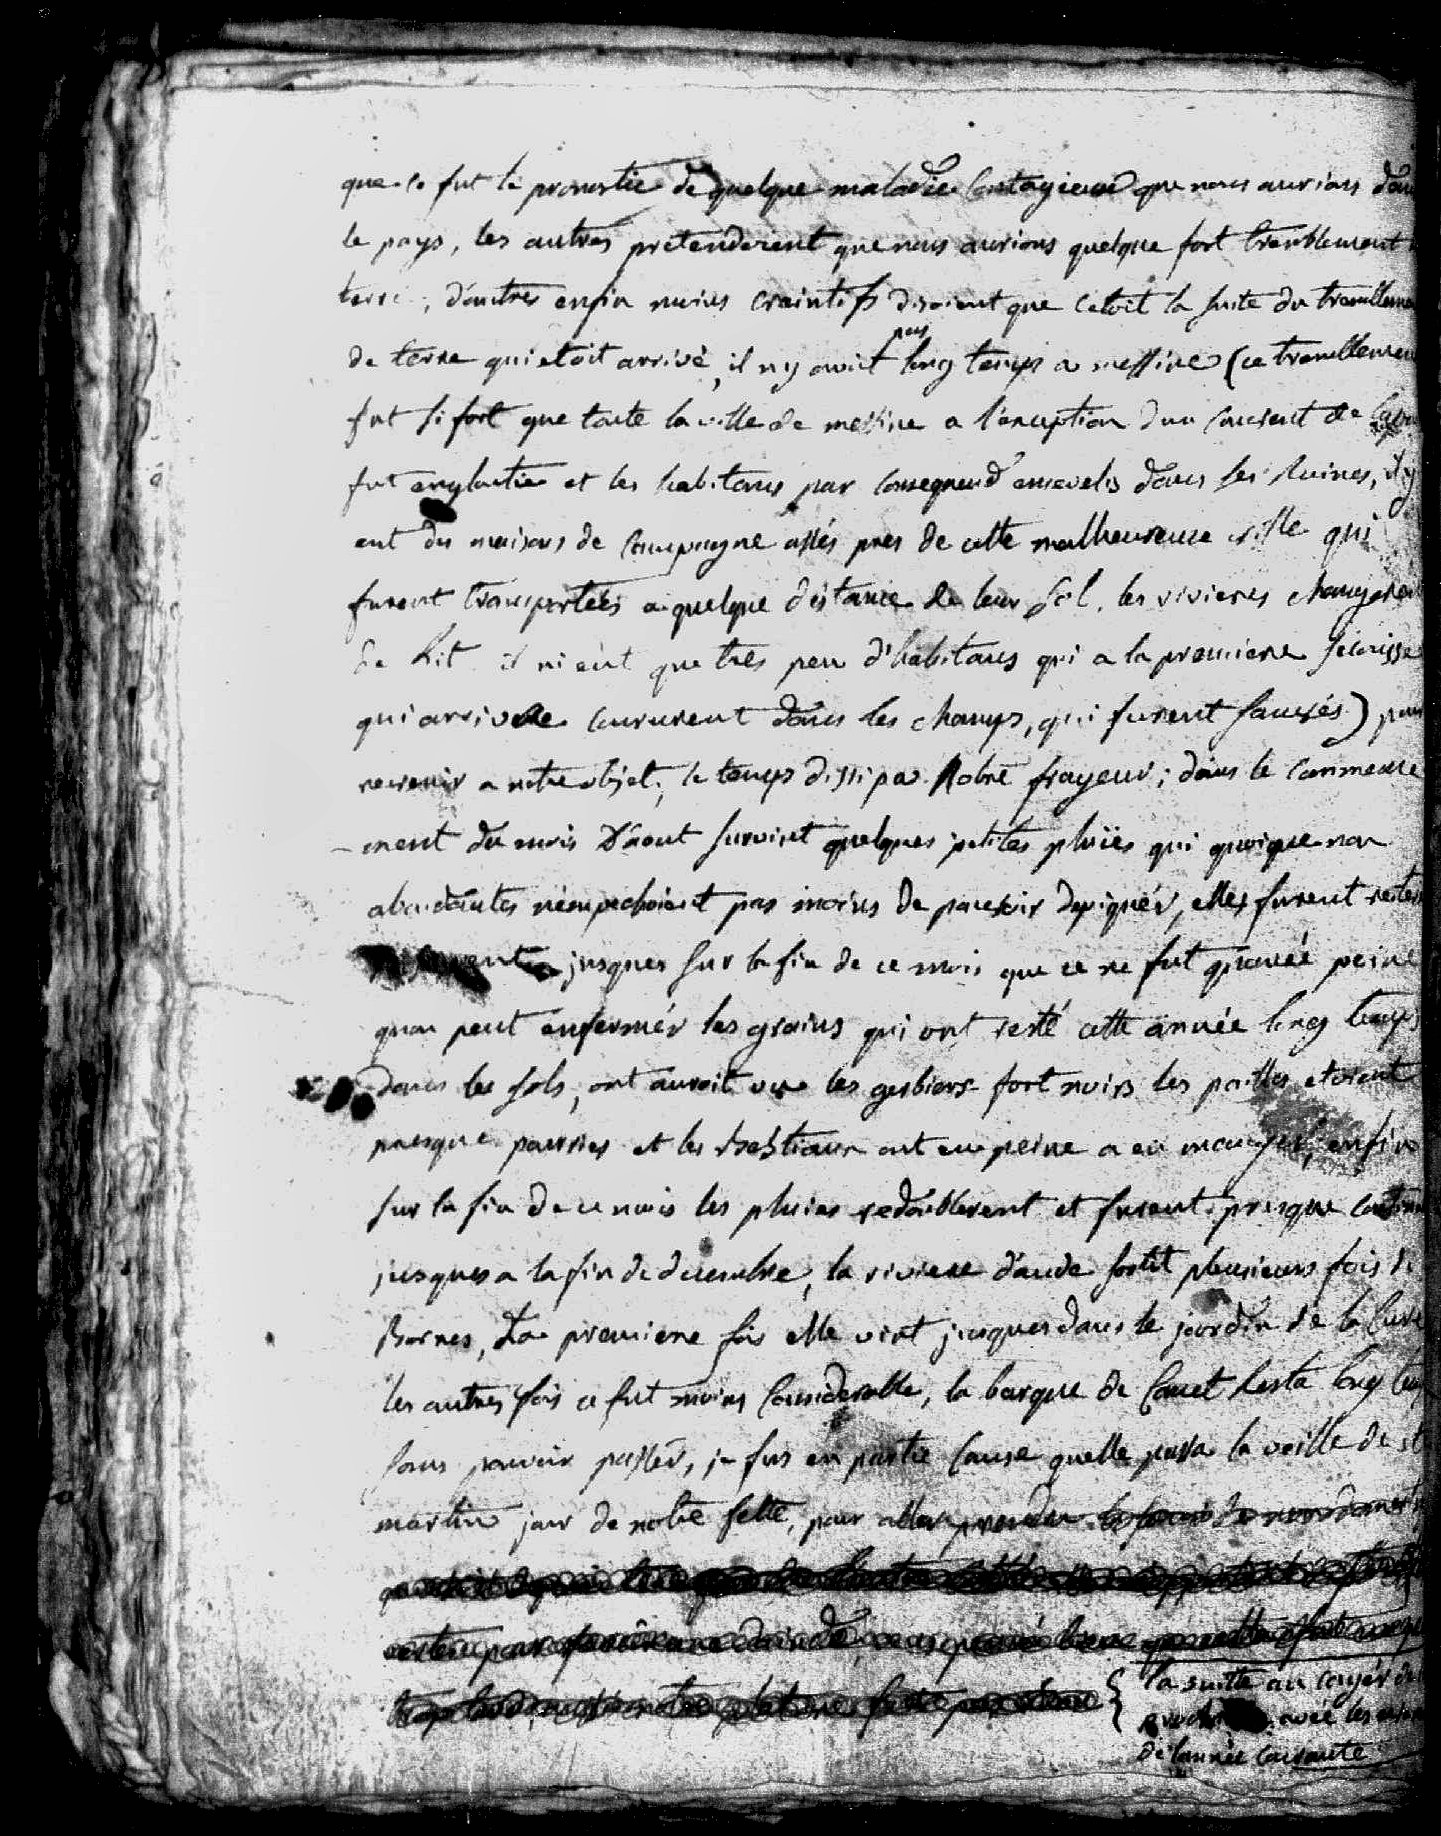 que ce fut le pronostic de quelque maladie Contagieuse que nous aurions dans
le pays, les autres pretendoient que nous aurions quelque fort tremblement
terre, d'autres enfin moins craintifs disoient que cetoit la suite du tremblement
de terre qui etoit arrivé, il ny avoit pas long temps a messine (ce tremblement
fut si fort que toute la ville de messine a l'exception dun Couvent de
fut engloutie et les habitans par Consequend ensevelis dans ses Ruines, il y
eut des maisons de Campagne assés pres de cette malheureuse ville qui
furent transportées a quelque distance de leur sol, les rivieres changerent
de Lit il ni eut que tres peu d'habitans qui a la premiere secousse
qui arriva Coururent dans les champs, qui furent sauvés) pour
revenir a notre objet, le temps dissipa Notre frayeur; dans le Commence
-ment du mois D'aout survint quelques petites pluies qui quoique non
abondantes n'empechoient pas moins de pouvoir depiquér, elles furent
jusques sur la fin de ce mois que ce ne fut qu'aveć peine
quon peut enfermér les grains qui ont resté cette année long temps
dans les sols, ont auroit vu les gerbiers fort noirs les pailles etoient
presque pourries et les Bestiaux ont eu peine a en mangér, enfin
sur la fin de ce mois les pluies redoublerent et furent presque
jusques a la fin de decembre, la riviere d'aude sortit plusieurs fois de
Bornes, La premiere fois elle vint jusques dans le jardin de la Cure
les autres fois ce fut moins Considerable, la barque de Canet Resta long
sans pouvoir passér, je fus en partie Cause quelle passa la veille de st
martin jour de notre fette, pour aller prendre
la suitte au cayér
aveć les
de l'année Courante